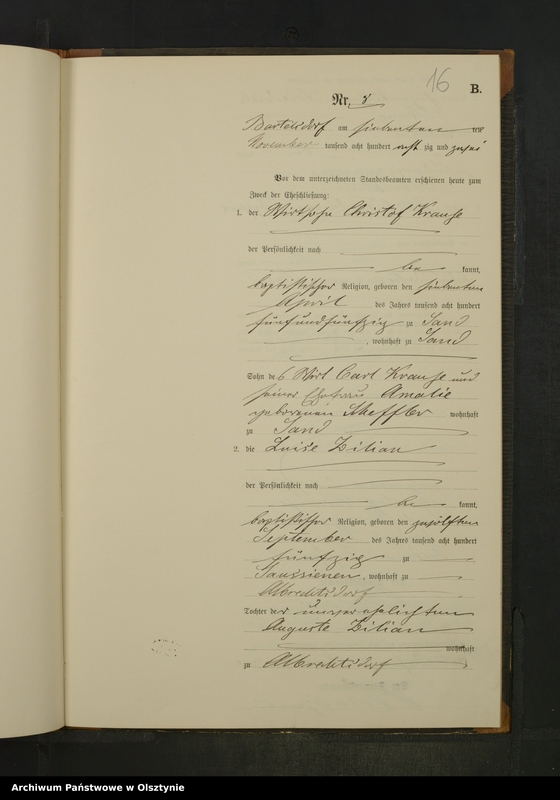 16
B.
Nr. 8
Bartelsdorf am siebenten ten
November tausend acht hundert acht zig und zwei
Vor dem unterzeichneten Standesbeamten erschienen heute zum
Zweck der Eheschließung:
1. der Wirtssohn Christof Krause
der Persönlichkeit nach
be kannt,
baptistischer Religion, geboren den siebenten
April des Jahres tausend acht hundert
fünfundfünfzig zu Sand
, wohnhaft zu Sand
Sohn des Wirt Carl Krause und
seiner Ehefrau Amalie
geborenen Scheffler wohnhaft
zu Sand
2. die Luise Zilian
der Persönlichkeit nach
be kannt,
baptistischer Religion, geboren den zwölften
September des Jahres tausend acht hundert
fünfzig zu
, wohnhaft zu
Albrechtsdorf
Tochter der unverehelichten
Auguste Zilian
wohnhaft
zu Albrechtsdorf
Archiwum Państwowe w Olsztynie